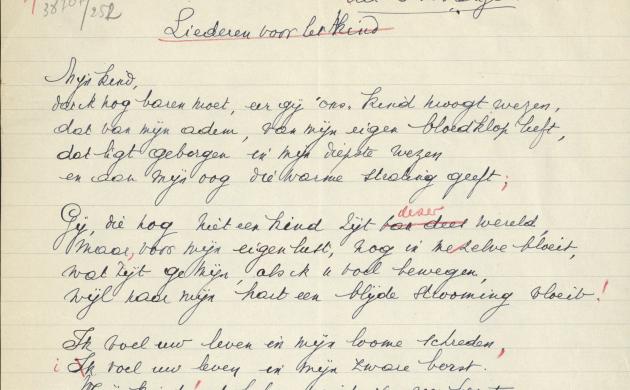 38707/252
Liederen voor het kind
Mijn kind,
dat ik nog baren moet, eer gij ons kind moogt wezen,
dat van mijn adem, van mijn eigen bloedklop heft,
dat ligt geborgen in mijn diepste wezen
en aan mijn oog die warme straling geeft;
Gij, die nog niet een kind zijt van deez' dezer wereld,
maar, voor mijn eigen lust, nog in me zelve bloeit,
wat zijt ge mijn, als ik u voel bewegen,
wijl naar mijn hart een blijde strooming vloeit!
Ik voel uw leven in mijn loome schreden,
i Ik voel uw leven in mijn zware borst.